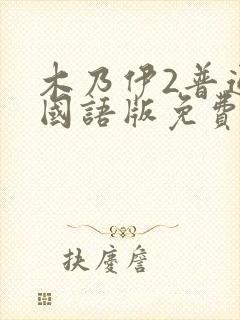 木乃伊2普通
國語版免費
扶慶詹